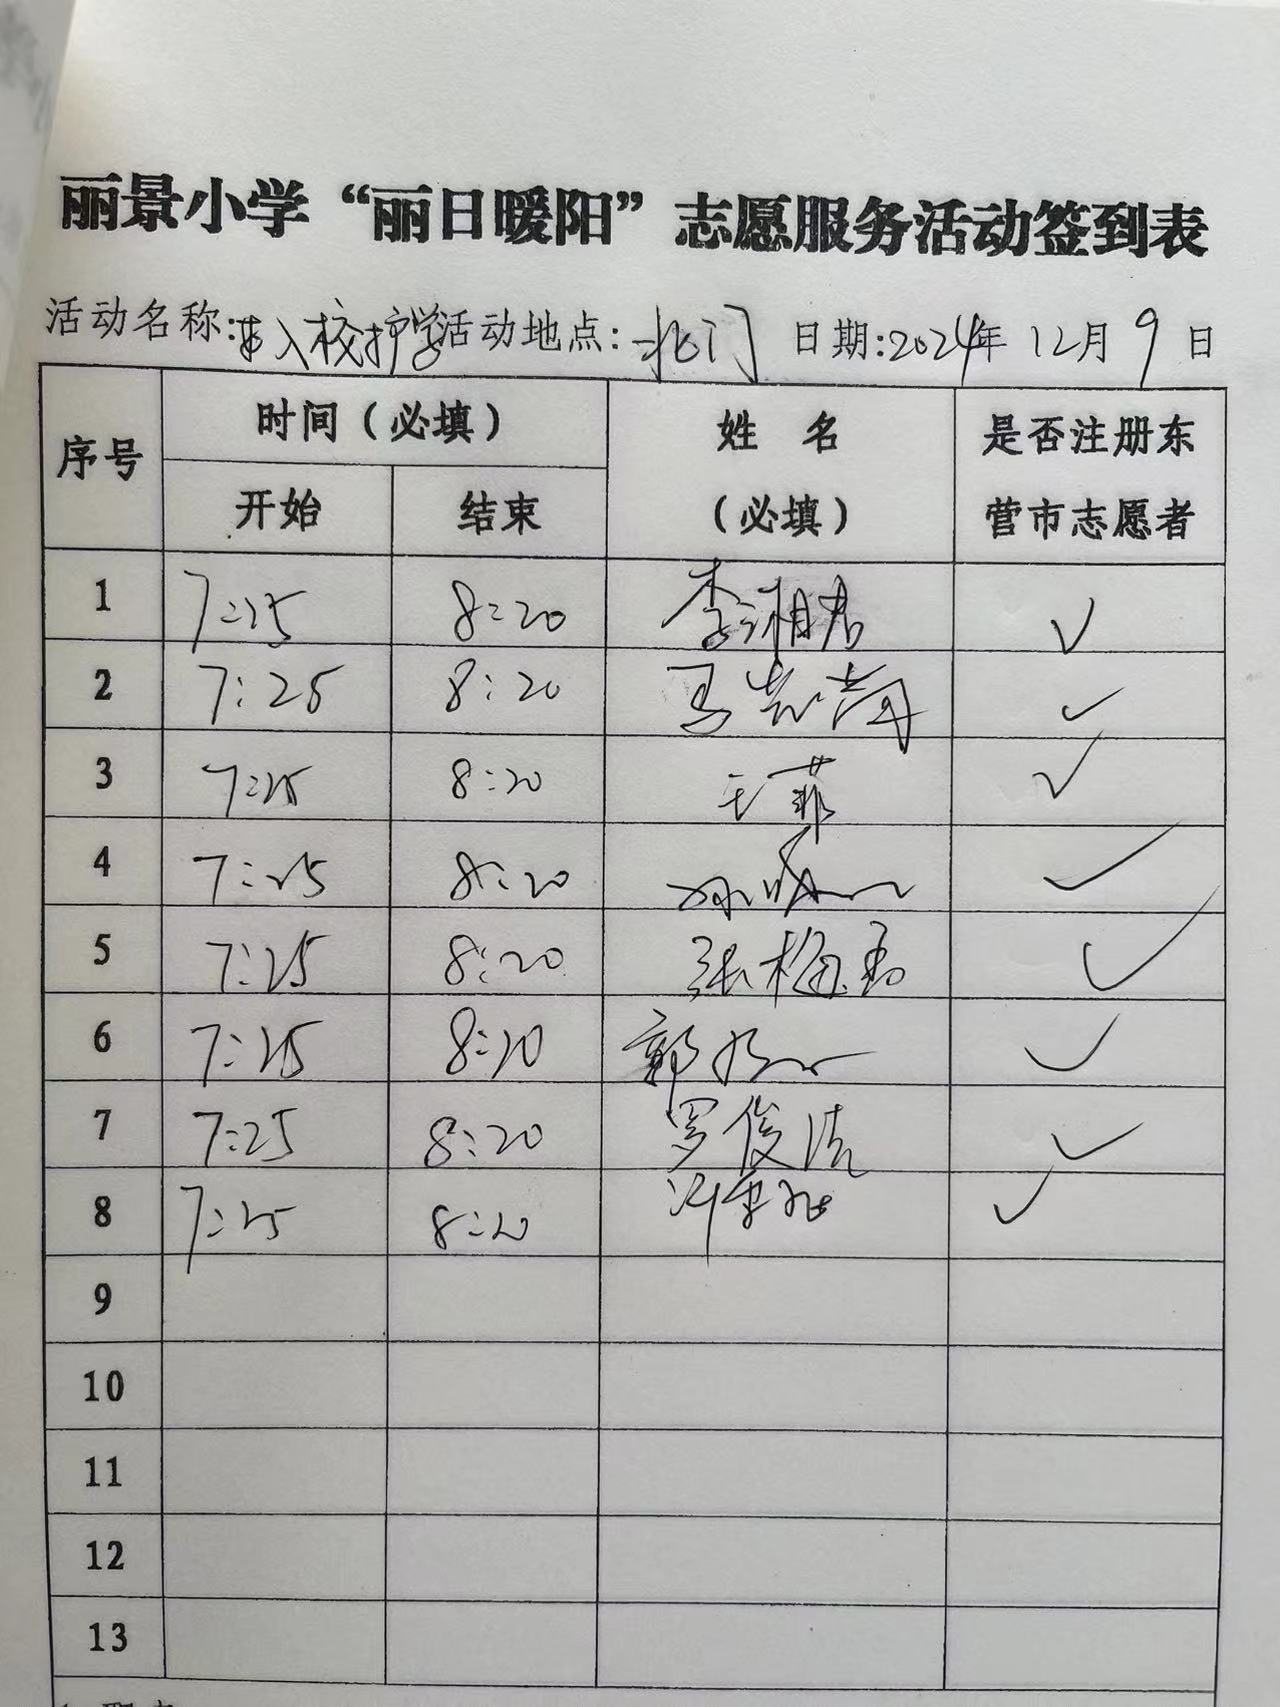 丽景小学“丽日暖阳”志愿服务活动签到表
活动名称: 入校护学 活动地点: 北门 日期:2024年 12月 9 日
序号 时间（必填） 姓 名（必填） 是否注册东营市志愿者
开始 结束
1 7:25 8:20 李湘君 ✓
2 7:25 8:20 ✓
3 7:25 8:20 王菲 ✓
4 7:25 8:20 ✓
5 7:25 8:20 张梅 ✓
6 7:25 8:20 郭 ✓
7 7:25 8:20 罗俊洁 ✓
8 7:25 8:20 ✓
9
10
11
12
13